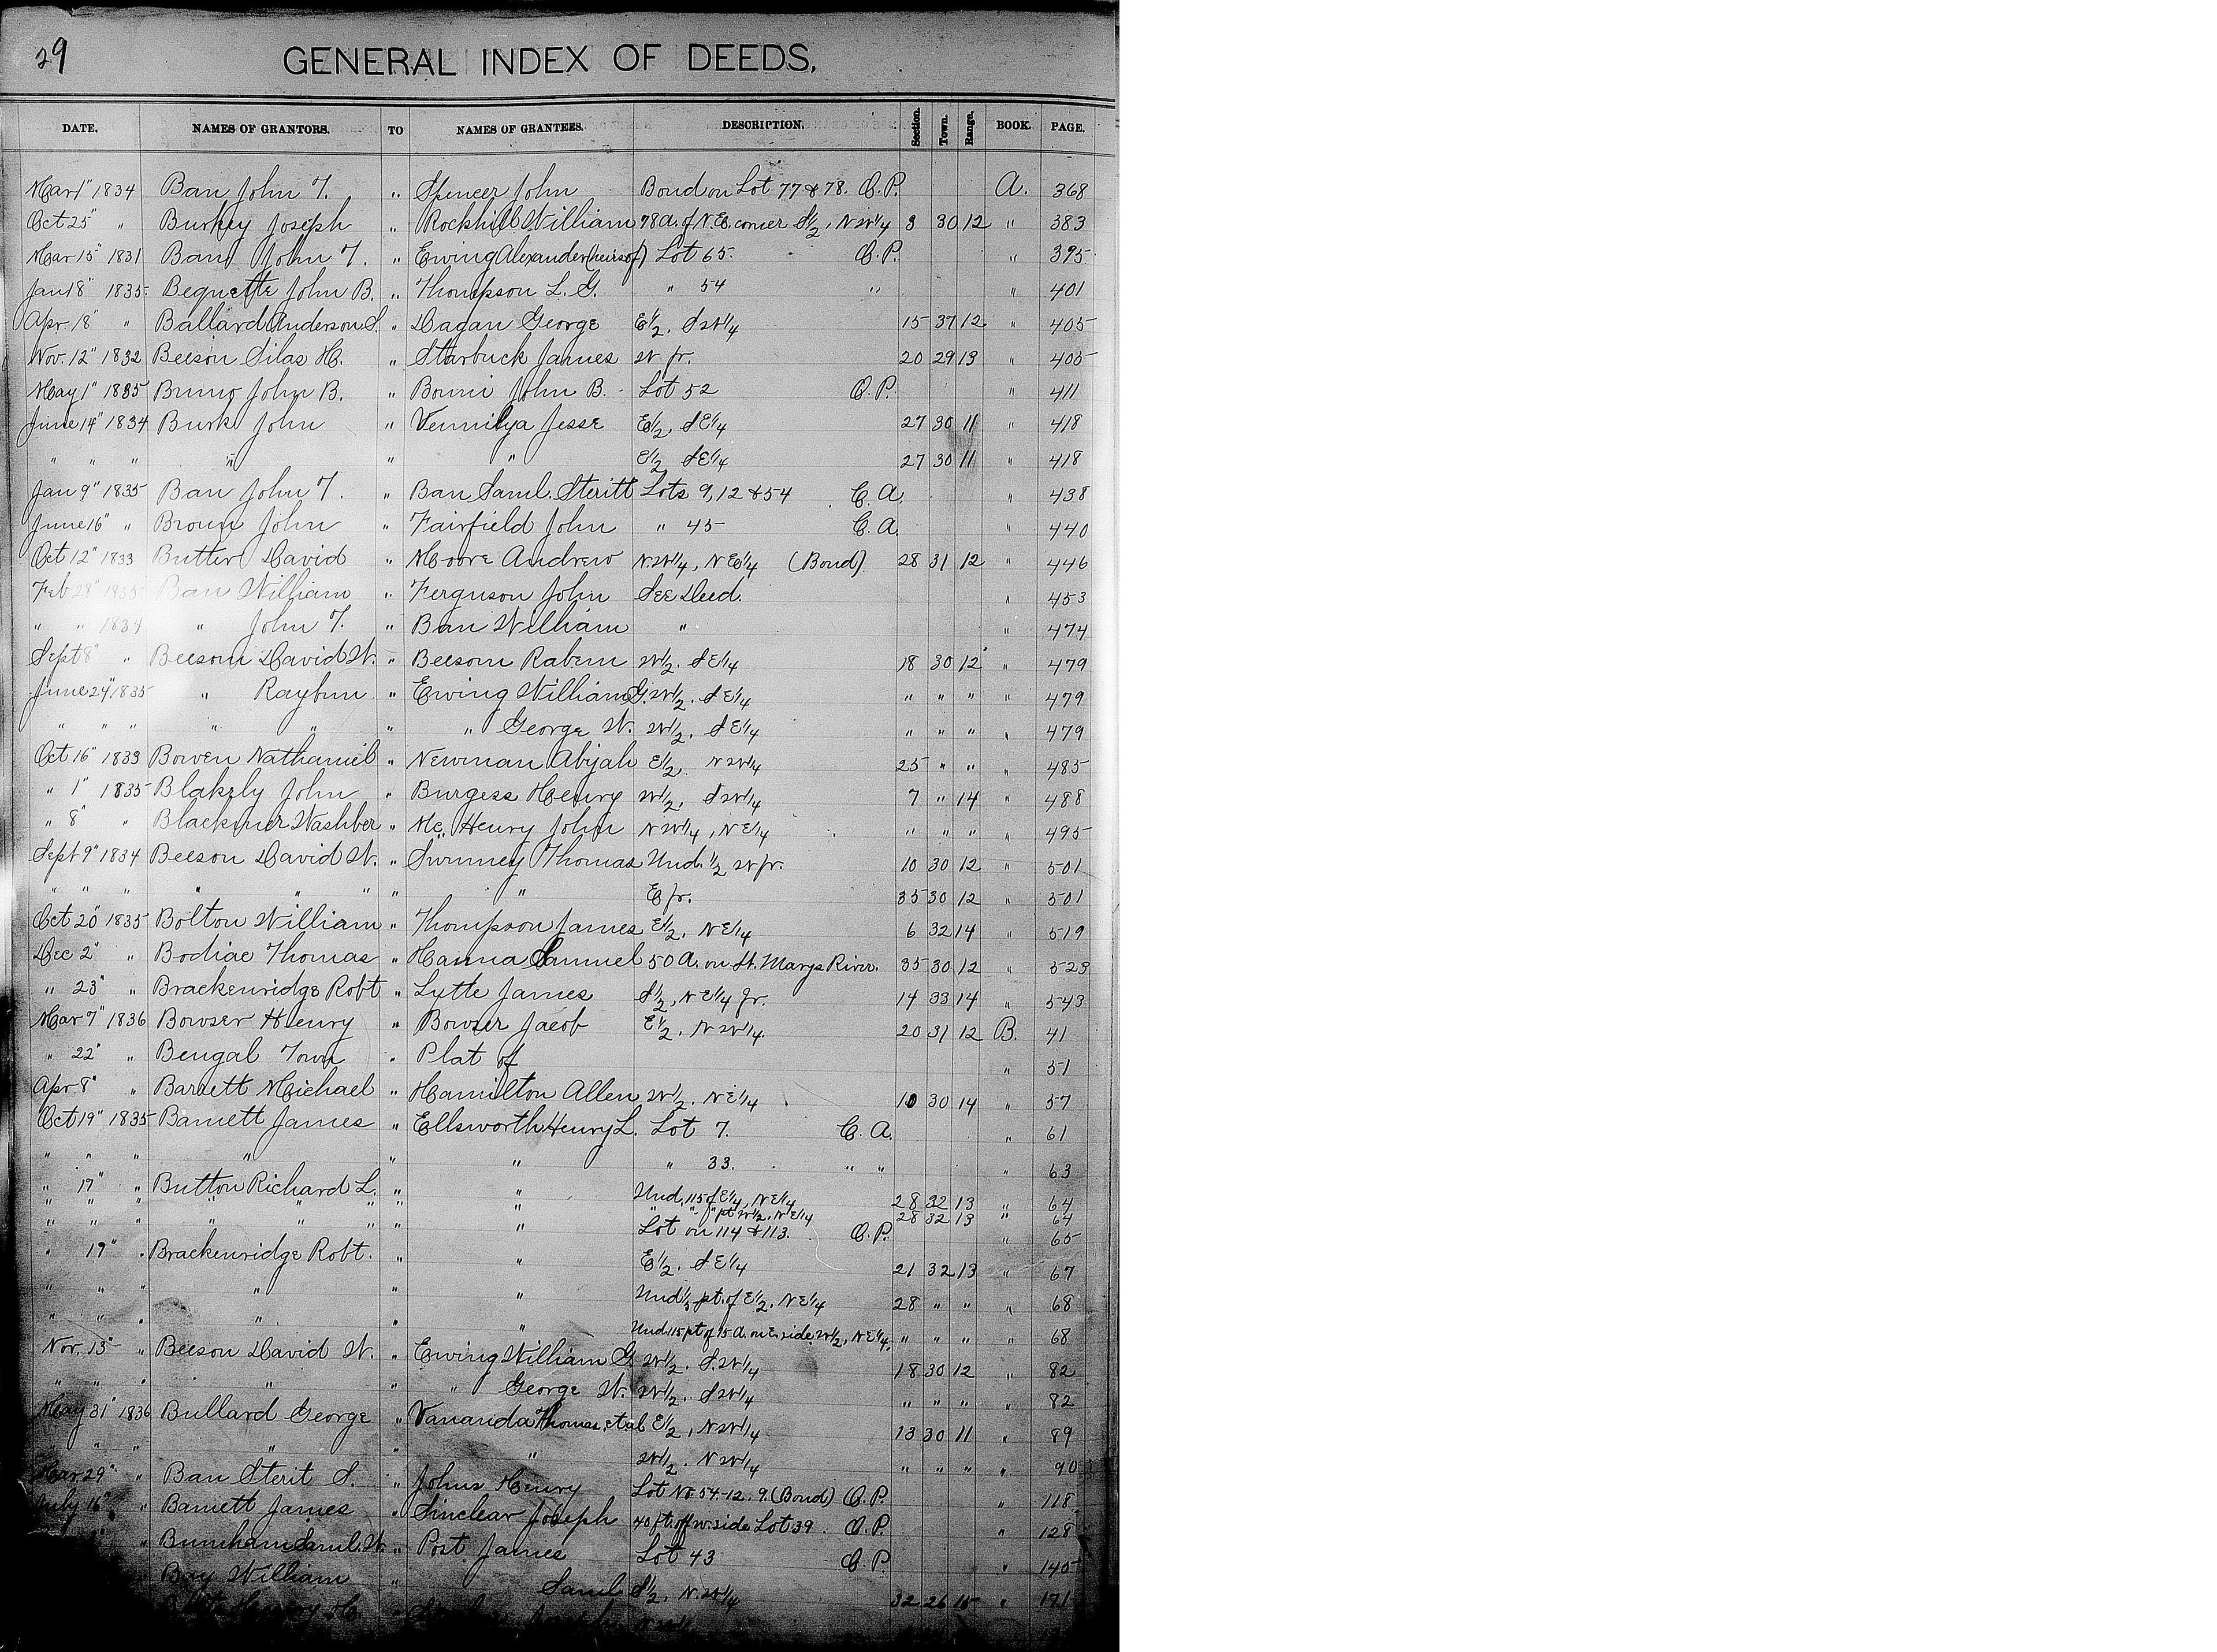 29
GENERAL INDEX OF DEEDS.
DATE. NAMES OF GRANTORS. TO NAMES OF GRANTEES. DESCRIPTION. Section. Town. Range. BOOK. PAGE.
Mar 1" 1834 Barr John T. " Spencer John Bond on Lot 77 & 78. O.P. A. 368
Oct 25" " Burkey Joseph " Rockhill William 78 A. of N.E. corner S1/2, NW1/4 3 30 12 " 383
Mar 15" 1831 Barr John T. " Ewing Alexander (heirs of) Lot 65. O.P. " 395
Jan 18" 1835 Bequette John B. " Thompson L. G. " 54 " " 401
Apr. 18" " Ballard Anderson S. " Dagan George E1/2, SW1/4 15 37 12 " 405
Nov. 12" 1832 Beeson Silas H. " Starbuck James W fr. 20 29 13 " 405
May 1" 1835 Bruno John B. " Bourri John B. Lot 52 O.P. " 411
June 14" 1834 Burk John " Vermilya Jesse E1/2, SE1/4 27 30 11 " 418
" " " " " " E1/2 SE1/4 27 30 11 " 418
Jan 9" 1835 Barr John T. " Barr Saml. Steritt Lots 9, 12 & 54 C. A. " 438
June 16" " Broun John " Fairfield John " 45 C. A. " 440
Oct 12" 1833 Butter David " Moore Andrew N.W1/4, NE1/4 (Bond) 28 31 12 " 446
Feb 28" 1835 Barr William " Ferguson John See Deed. " 453
" " 1834 " John T. " Barr William " " 474
Sept 8" " Beeson David W. " Beeson Raburn W1/2. SE1/4 18 30 12 " 479
June 24" 1835 " Rayburn " Ewing William G. W1/2. SE1/4 " " " " 479
" " " " " " " George W. W1/2, SE1/4 " " " " 479
Oct 16" 1833 Bowen Nathaniel " Newman Abijah E1/2, NW1/4 25 " " " 485
" 1" 1835 Blakely John " Burgess Henry W1/2, SW1/4 7 " 14 " 488
" 8" " Blackmer Washber " Mc Henry John NW1/4, NE1/4 " " " " 495
Sept 9" 1834 Beeson David W. " Swinney Thomas Und. 1/2 W fr. 10 30 12 " 501
" " " " " " " " E fr. 35 30 12 " 501
Oct 20" 1835 Bolton William " Thompson James E1/2, NE1/4 6 32 14 " 519
Dec 2" " Bodiae Thomas " Hanna Samuel 50 A. on St. Marys River. 35 30 12 " 523
" 23" " Brackenridge Robt " Lytte James S1/2, NE1/4 fr. 14 33 14 " 543
Mar 7" 1836 Bowser Henry " Bowser Jacob E1/2. NW1/4. 20 31 12 B. 41
" 22" " Bengal Town " Plat of " 51
Apr 8" " Barrett Michael " Hamilton Allen W1/2. NE1/4 10 30 14 " 57
Oct 19" 1835 Barnett James " Ellsworth Henry L. Lot 7. C. A. " 61
" " " " " " " 33. " " " 63
" 17" " Button Richard L. " " Und. 115 of E1/4, NE1/4 28 32 13 " 64
" " " " " " " " " pt W1/2, NE1/4 28 32 13 " 64
" " " " " " " " Lot on 114 & 113. O.P. " 65
" 19" " Brackenridge Robt. " " E1/2. SE1/4 21 32 13 " 67
" " " " " " Und 1/3 pt. of E1/2. NE1/4 28 " " " 68
" " " " " " Und 115 pt of 15 A. on E. side W1/2, NE1/4, " " " " 68
Nov. 13" " Beeson David W. " Ewing William G. W1/2. S.W1/4 18 30 12 " 82
" " " " " " George W. W1/2. SW1/4 " " " " 82
May 31" 1836 Bullard George " Vananda Thomas. et al E1/2, NW1/4 13 30 11 " 89
" " " " " " W1/2. NW1/4 " " " " 90
Mar 29" " Barr Sterit S. " Johns Henry Lot No 54. 12. 9. (Bond) O.P. " 118
July 16" " Barnett James " Sinclear Joseph 40 ft. off w. side Lot 39. O.P. " 128
" Burnham Saml. W. " Post James Lot 43 O.P. " 145
Bay William " Saml S1/2, N.W1/4 32 26 15 " 171